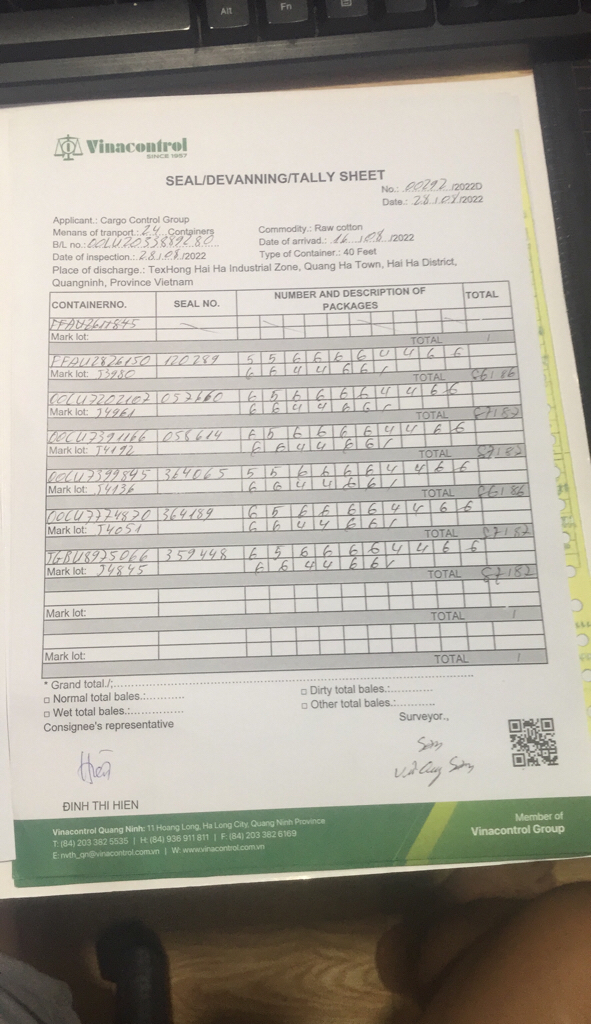 Alt
Fn
Vinacontrol
SINCE 1957
SEAL/DEVANNING/TALLY SHEET
No.: 00292 /2022D
Date.: 28/08/2022
Applicant.: Cargo Control Group
Commodity.: Raw cotton
Menans of tranport.: 24 Containers
Date of arrivad.: 16/08/2022
B/L no.:
Type of Container.: 40 Feet
Date of inspection.: 28/08/2022
Place of discharge.: TexHong Hai Ha Industrial Zone, Quang Ha Town, Hai Ha District,
Quangninh, Province Vietnam
CONTAINERNO. SEAL NO. NUMBER AND DESCRIPTION OF PACKAGES TOTAL
Mark lot: TOTAL /
FFAU2826150 120289 5 5 6 6 6 6 4 4 6 6
Mark lot: J3980 6 6 4 4 6 6 / TOTAL 86/86
6 5 6 6 6 6 4 4 6 6
Mark lot: J4961 6 6 4 4 6 6 / TOTAL 87/87
058614 6 5 6 6 6 6 4 4 6 6
Mark lot: J4192 6 6 4 4 6 6 / TOTAL 87/87
OOCU7399845 364065 5 5 6 6 6 6 4 4 6 6
Mark lot: J4136 6 6 4 4 6 6 / TOTAL 86/86
364189 6 5 6 6 6 6 4 4 6 6
Mark lot: J4051 6 6 4 4 6 6 / TOTAL 87/87
TGBU8975066 359448 6 5 6 6 6 6 4 4 6 6
Mark lot: J4845 6 6 4 4 6 6 / TOTAL 87/87
Mark lot: TOTAL /
Mark lot: TOTAL /
* Grand total./:
□ Normal total bales.:
□ Dirty total bales.:
□ Wet total bales.:
□ Other total bales.:
Consignee's representative
Surveyor.,
Hiền
Sơn
Sơn
ĐINH THI HIEN
Vinacontrol Quang Ninh: 11 Hoang Long, Ha Long City, Quang Ninh Province
T: (84) 203 382 5535 | H: (84) 936 911 811 | F: (84) 203 382 6169
E: nvth_qn@vinacontrol.com.vn | W: www.vinacontrol.com.vn
Member of
Vinacontrol Group